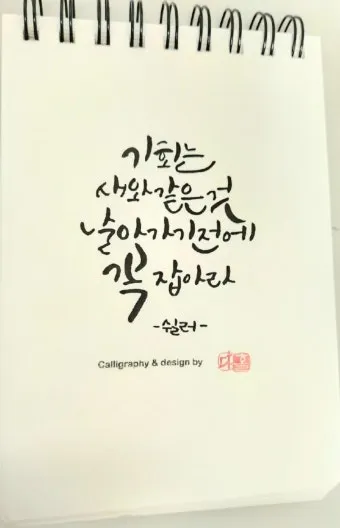 기회는
새와 같은 것
날아가기 전에
꼭 잡아라
-쉴러-
Calligraphy & design by